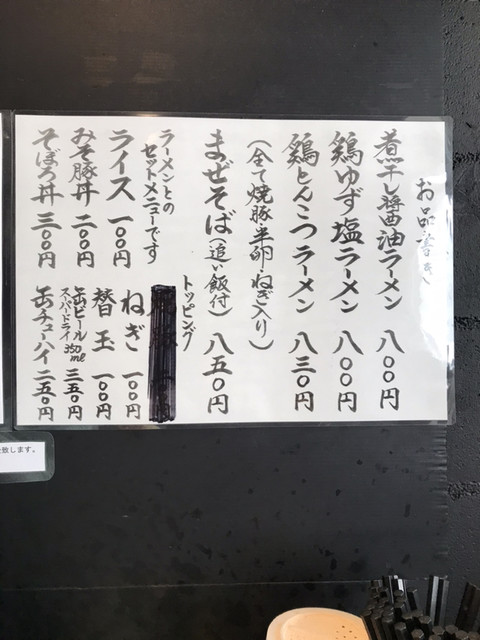 お品書き
煮干し醤油ラーメン 八〇〇円
鶏ゆず塩ラーメン 八〇〇円
鶏とんこつラーメン 八三〇円
(全て焼豚半卵・ねぎ入り)
まぜそば(追い飯付) 八五〇円
トッピング
ねぎ 一〇〇円
替玉 一〇〇円
缶ビール スーパードライ 350ml 三五〇円
缶チューハイ 二五〇円
ラーメンとの
セットメニューです
ライス 一〇〇円
みそ豚丼 二〇〇円
そぼろ丼 三〇〇円
致します。